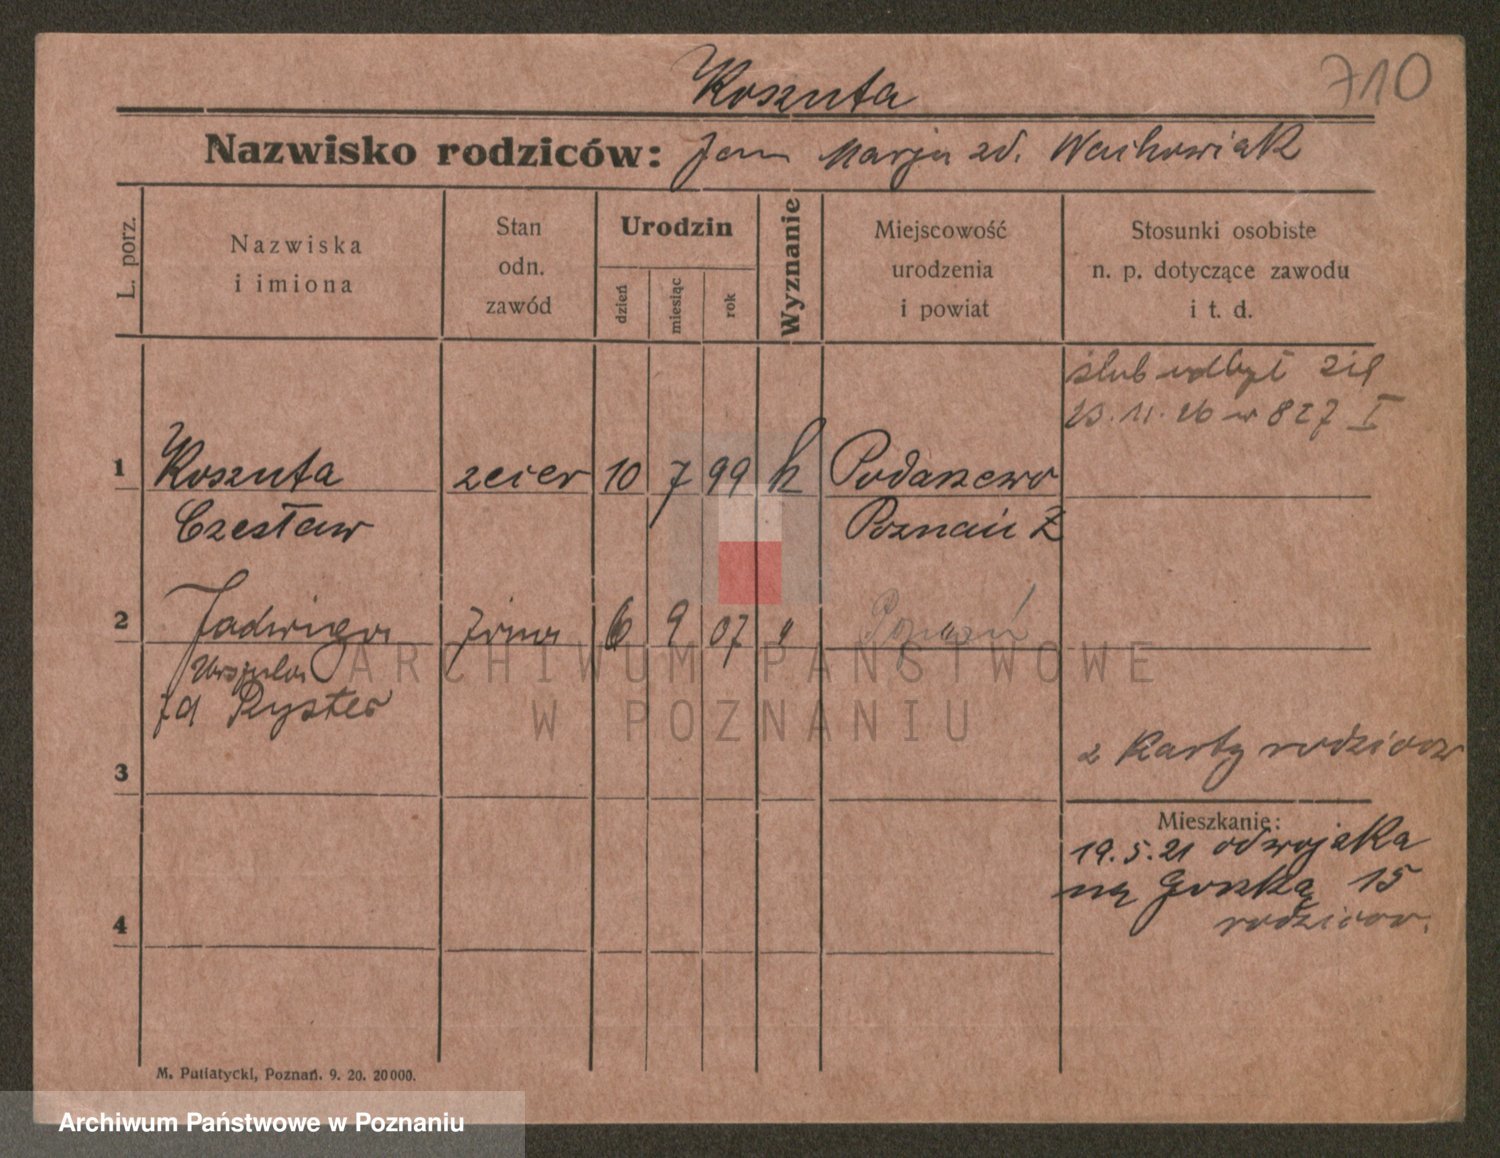 710
Koszuta
Nazwisko rodziców: Jan Marja zd. Wachowiak
L. porz.
Nazwiska
i imiona
Stan
odn.
zawód
Urodzin
dzień
miesiąc
rok
Wyznanie
Miejscowość
urodzenia
i powiat
Stosunki osobiste
n. p. dotyczące zawodu
i t. d.
ślub odbył się
23.11.26 w 827 I
1 Koszuta zecer 10 7 99 k Podarzewo
Czesław Poznań Z
2 Jadwiga żona 6 9 07 " Poznań
Urszula
zd
3
z karty rodziców
Mieszkanie:
19.5.21 od wojska
na 15
rodziców.
4
M. Putiatycki, Poznań. 9. 20. 20000.
ARCHIWUM PAŃSTWOWE
W POZNANIU
Archiwum Państwowe w Poznaniu